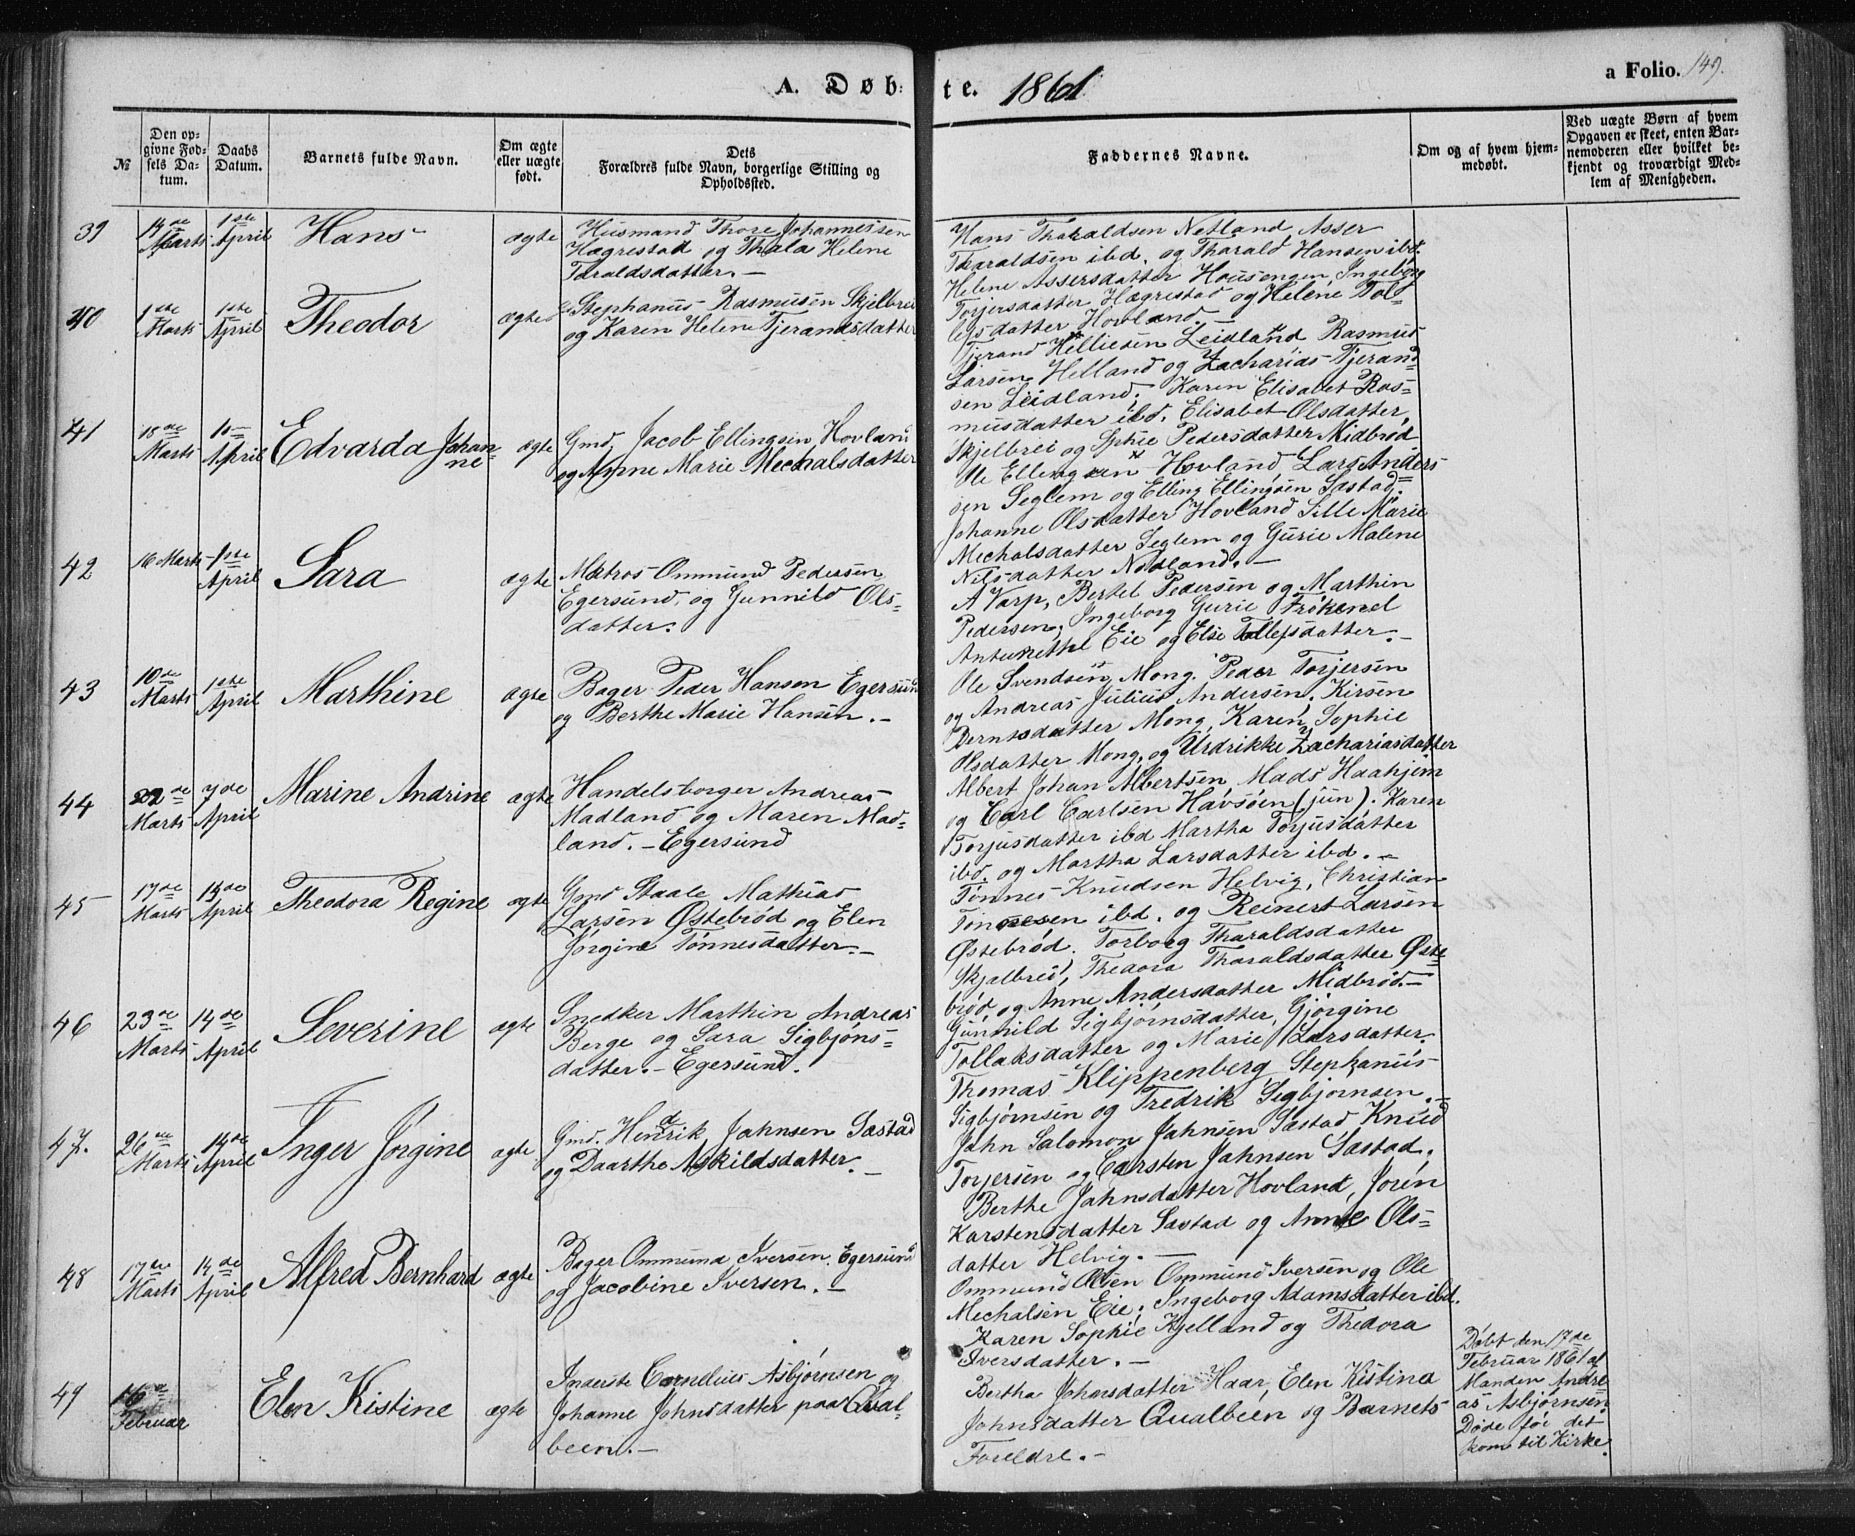 A. Døbte. 1861
a Folio. 149.
№
Den opgivne Fodsels Datum.
Daabs Datum.
Barnets fulde Navn.
Om ægte eller uægte født.
Dets Forældres fulde Navn, borgerlige Stilling og Opholdssted.
Faddernes Navne.
Om og af hvem hjemmedøbt.
Ved uægte Børn af hvem Opgaven er skeet, enten Barnemoderen eller hvilket bekjendt og troværdigt Medlem af Menigheden.
39 14de Marts 1ste April Hans ægte
Husmand Thore Johannessen
Hægrestad og Thala Helene
Taraldsdatter. —
Hans Tharaldsen Netland, Asser
Tharaldsen ibd. og Tharald Hansen ibd.
Helene Assersdatter Housengen, Ingeborg
Torjersdatter Hægrestad og Helene Tol-
lefsdatter Hovland. —
40 1ste Marts 1ste April Theodor ægte
Stephanus Rasmusen Skjelbrei
og Karen Helene Tjerandsdatter
Tjerand Helliesen Leidland, Rasmus
Larsen Helland og Zacharias Tjerand-
sen Leidland, Karen Elisabet Ras-
musdatter ibd. Elisabet Olsdatter
Skjelbrei og Sphie Pedersdatter Midbrød
41 18de Marts 1ste April Edvarda Johan-
ne ægte
Gmd. Jacob Ellingsen Hovland
og Anne Marie Mechalsdatter
Ole Ellingsen Hovland, Lars Anders-
sen Seglem og Elling Ellingsen Sæstad
Johanne Olsdatter Hovland Sille Marie
Mechalsdatter Seglem og Gurie Malene
Nilsdatter Nodland. —
42 16 Marts 1ste April Sara ægte
Matros Ommund Pedersen
Egersund, og Gunnild Ols-
datter.
A Varp, Bertel Pedersen og Marthin
Pedersen, Ingeborg Gurie Frøkened
Antonethe Eie og Else Tollefsdatter. —
43 10de Marts 1ste April Marthine ægte
Bager Peder Hansen Egersund
og Berthe Marie Hansen. —
Ole Svendsen Mong. Peder Torjersen
og Andreas Julius Andersen, Kirsen
Berntsdatter Mong, Karen Sophie
Olsdatter Mong, og Urdrikke Zachariasdatter
44 22de Marts 7de April Marine Andrine ægte
Handelsborger Andreas
Madland og Maren Mad-
land. — Egersund
Albert Johan Albertsen, Mads Haahjem
og Carl Carlsen Havsøen (jun). Karen
Torjusdatter ibd Martha Torjusdatter
ibd. og Martha Larsdatter ibd. —
45 17de Marts 14de April Theodora Regine ægte
Gmd Staale Mathias
Larsen Østebrød og Elen
Jørgine Tønnesdatter. —
Tønnes Knudsen Helvig, Christian
Tønnesen ibd. og Reinert Larsen
Østebrød. Torborg Tharaldsdatter
Skjalbrei, Thedora Tharaldsdatter Øste-
brød, og Anne Andersdatter Midbrød. —
46 23de Marts 14de April Severine ægte
Snedker Marthin Andreas
Berge og Sara Sigbjøns-
datter. — Egersund.
Gunnild Sigbjørnsdatter, Gjørgine
Tollaksdatter og Marie Larsdatter.
Thomas Klippenberg, Stephanus
Sigbjørnsen og Fredrik Sigbjørnsen. —
47. 26de Marts 14de April Inger Jørgine ægte
Gmd. Hendrik Jahnsen Sæstad
og Daarthe Askildsdatter. —
Jahn Salomon Jahnsen Sæstad, Knud
Torjersen og Carsten Jahnsen Sæstad.
Berthe Jahnsdatter Hovland, Joren
Karstensdatter Sæstad og Anne Ols-
datter Helvig. —
48 17de Marts 14de April Alfred Bernhard ægte
Bager Ommund Iversen. Egersund
og Jacobine Iversen. —
Ommund Olsen Ommund Iversen og Ole
Mechalsen Eie. Ingeborg Adamsdatter ibd.
Karen Sophie Kjelland og Thedora
Iversdatter. —
49 16de Februar Elen Kistine ægte
Inderste Cornelius Asbjørnsen og
Johanne Johnsdatter paa Qval-
been. —
Bertha Johnsdatter Haar, Elen Kistina
Johnsdatter Qualbeen og Barnets
Foreldre. —
Døbt den 17de
Februar 1861 af
Manden Andre-
as Asbjørnsen
Døde før det
kom til Kirke.